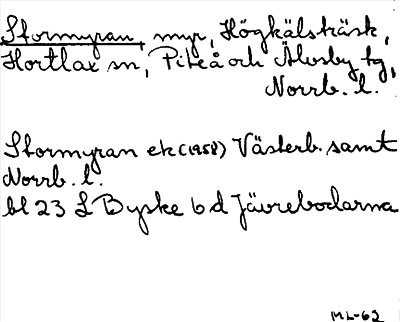 Stormyran, myr, Högkälsträsk,
Hortlax sn, Piteå och Älvsby tg,
Norrb. l.
Stormyran ek (1958) Västerb. samt
Norrb. l.
bl 23 L Byske 6 d Jävrebodarna
ML-62